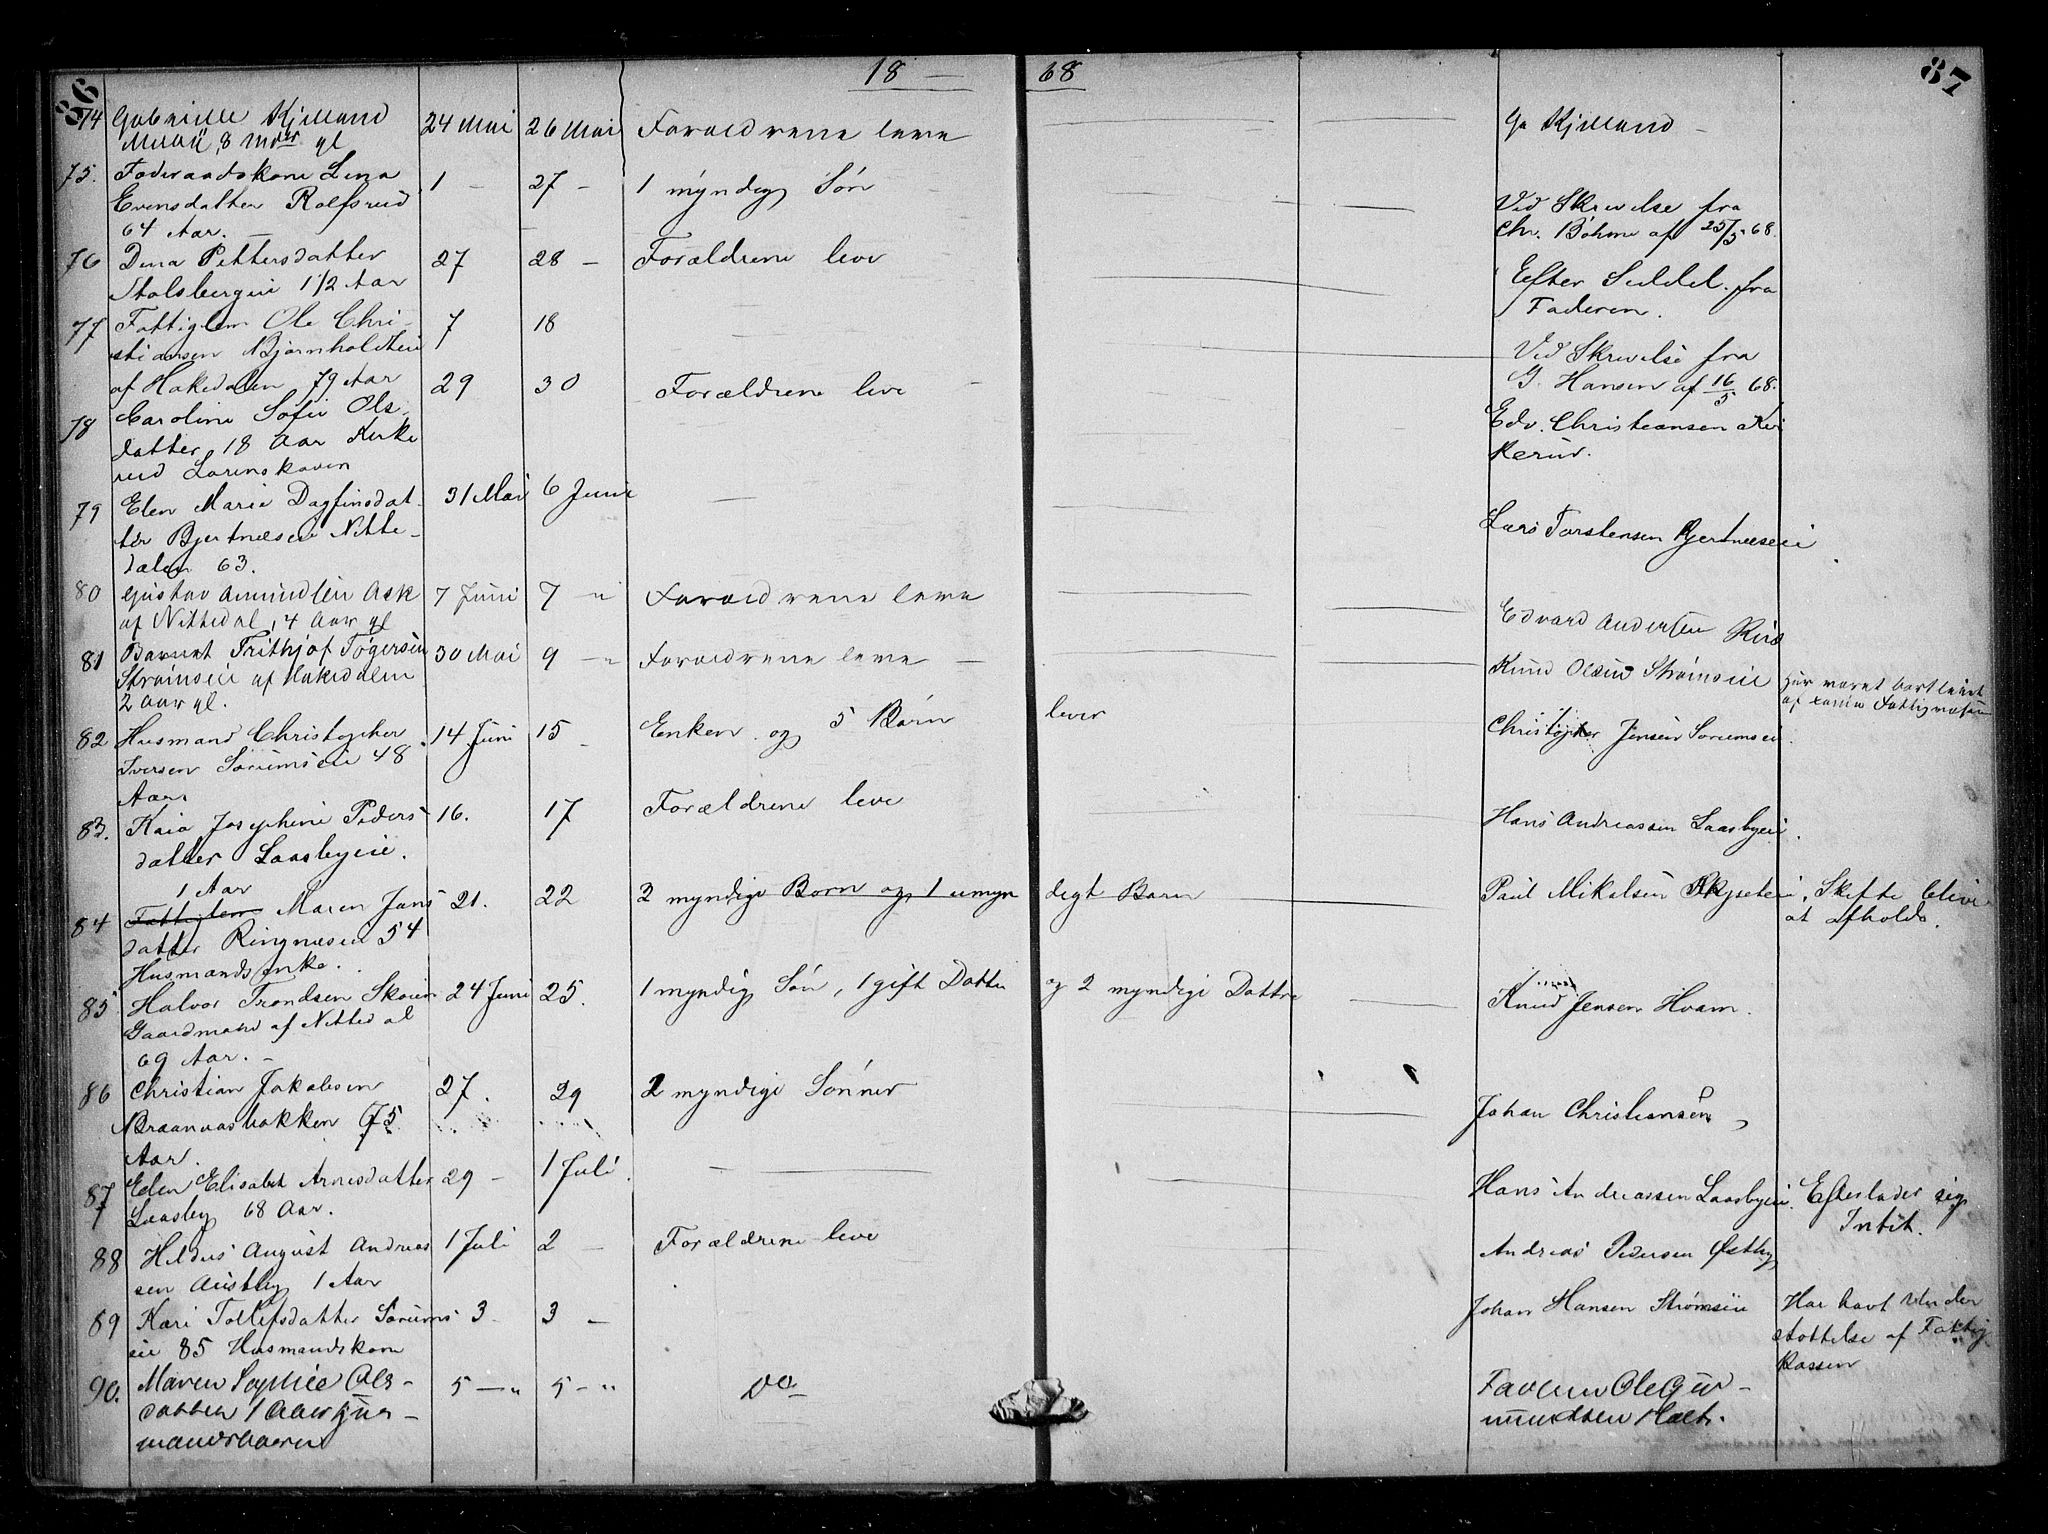 86
18 — 68
87
74 Gabrielle Kjelland 24 Mai 26 Mai Forældrene leve Ga Kjelland
8 Mdr gl
75. Foderaadskone Lina 1 - 27 - 1 myndig Søn Ved Skrivelse fra
Evensdatter Rolfsrud Chr. Bøhme af 25/5 68.
64 Aar.
76 Dina Pettersdatter 27 28 - Forældrene leve Efter Seddel fra
Stolsbergeie 1 1/2 Aar Faderen.
77 Fattiglem Ole Chri- 7 18 — Ved Skrivelse fra
stiansen Bjørnholdteie G. Hansen af 16/5 68.
af Hakedalen 79 Aar
78 Caroline Sofie Ols- 29 30 Forældrene leve Edv. Christiansen Kir
datter 18 Aar Kirke kerud.
rud Lørenskoven
79 Elen Marie Dagfinsdat- 31 Mai 6 Juni — Lars Torstensen Bjertnæseie
ter Bjertnæseie Nitte-
dalen 63.
80 Gustav Amundsen Ask 7 Juni 7 -"- Forældrene leve Edvard Andersen
af Nittedal, 4 Aar gl
81 Barnet Frithjof Tøgersen 30 Mai 9 -"- Forældrene leve Knud Olsen Strømseie Har været bortleiet
Strømseie af Hakedalen af Fattigvæsen
2 Aar gl.
82 Husmand Christopher 14 Juni 15 - Enken og 5 Børn lever Christopher Jensen Sørumseie
Iversen Sørumseie 48
Aar
83. Kaia Josephine Peders 16. 17 Forældrene leve Hans Andreassen Laasbyeie.
datter Laasbyeie.
1 Aar
84 Fattiglem Maren Jans 21. 22 2 myndige Børn og 1 umyndigt Barn Paul Mikelsen Skyseteie, Skifte blive
datter Ringnæseie 54 at afholde.
Husmandsenke.
85 Halvor Trondsen Skøien 24 Juni 25. 1 myndig Søn, 1 gift Datter og 2 myndige Døttre Knud Jensen Hvam.
Gaardmand af Nittedal
69 Aar. -
86 Christian Jakobsen 27. 29 2 myndige Sønner Johan Christiansen
Braanaasbakken 75
Aar.
87 Elen Elisabet Arnesdatter 29 - 1 Juli — Hans Andreassen Laasbyeie. Efterlader sig
Laasby 68 Aar. Intet.
88 Heldus August Andreas 1 Juli 2 - Forældrene leve Andreas Pedersen Østby
sen Austby 1 Aar
89 Kari Tollefsdatter Sørums 3 3 - Johan Hansen Strømseie Har havt Under
eie 85 Husmandskone støttelse af Fattig
kassen
90. Maren Sophie Ols- 5 -" 5 -" Do Faderen Ole Gud-
datter 1 Aar Hus- mundsen Holt.
mandsbarn